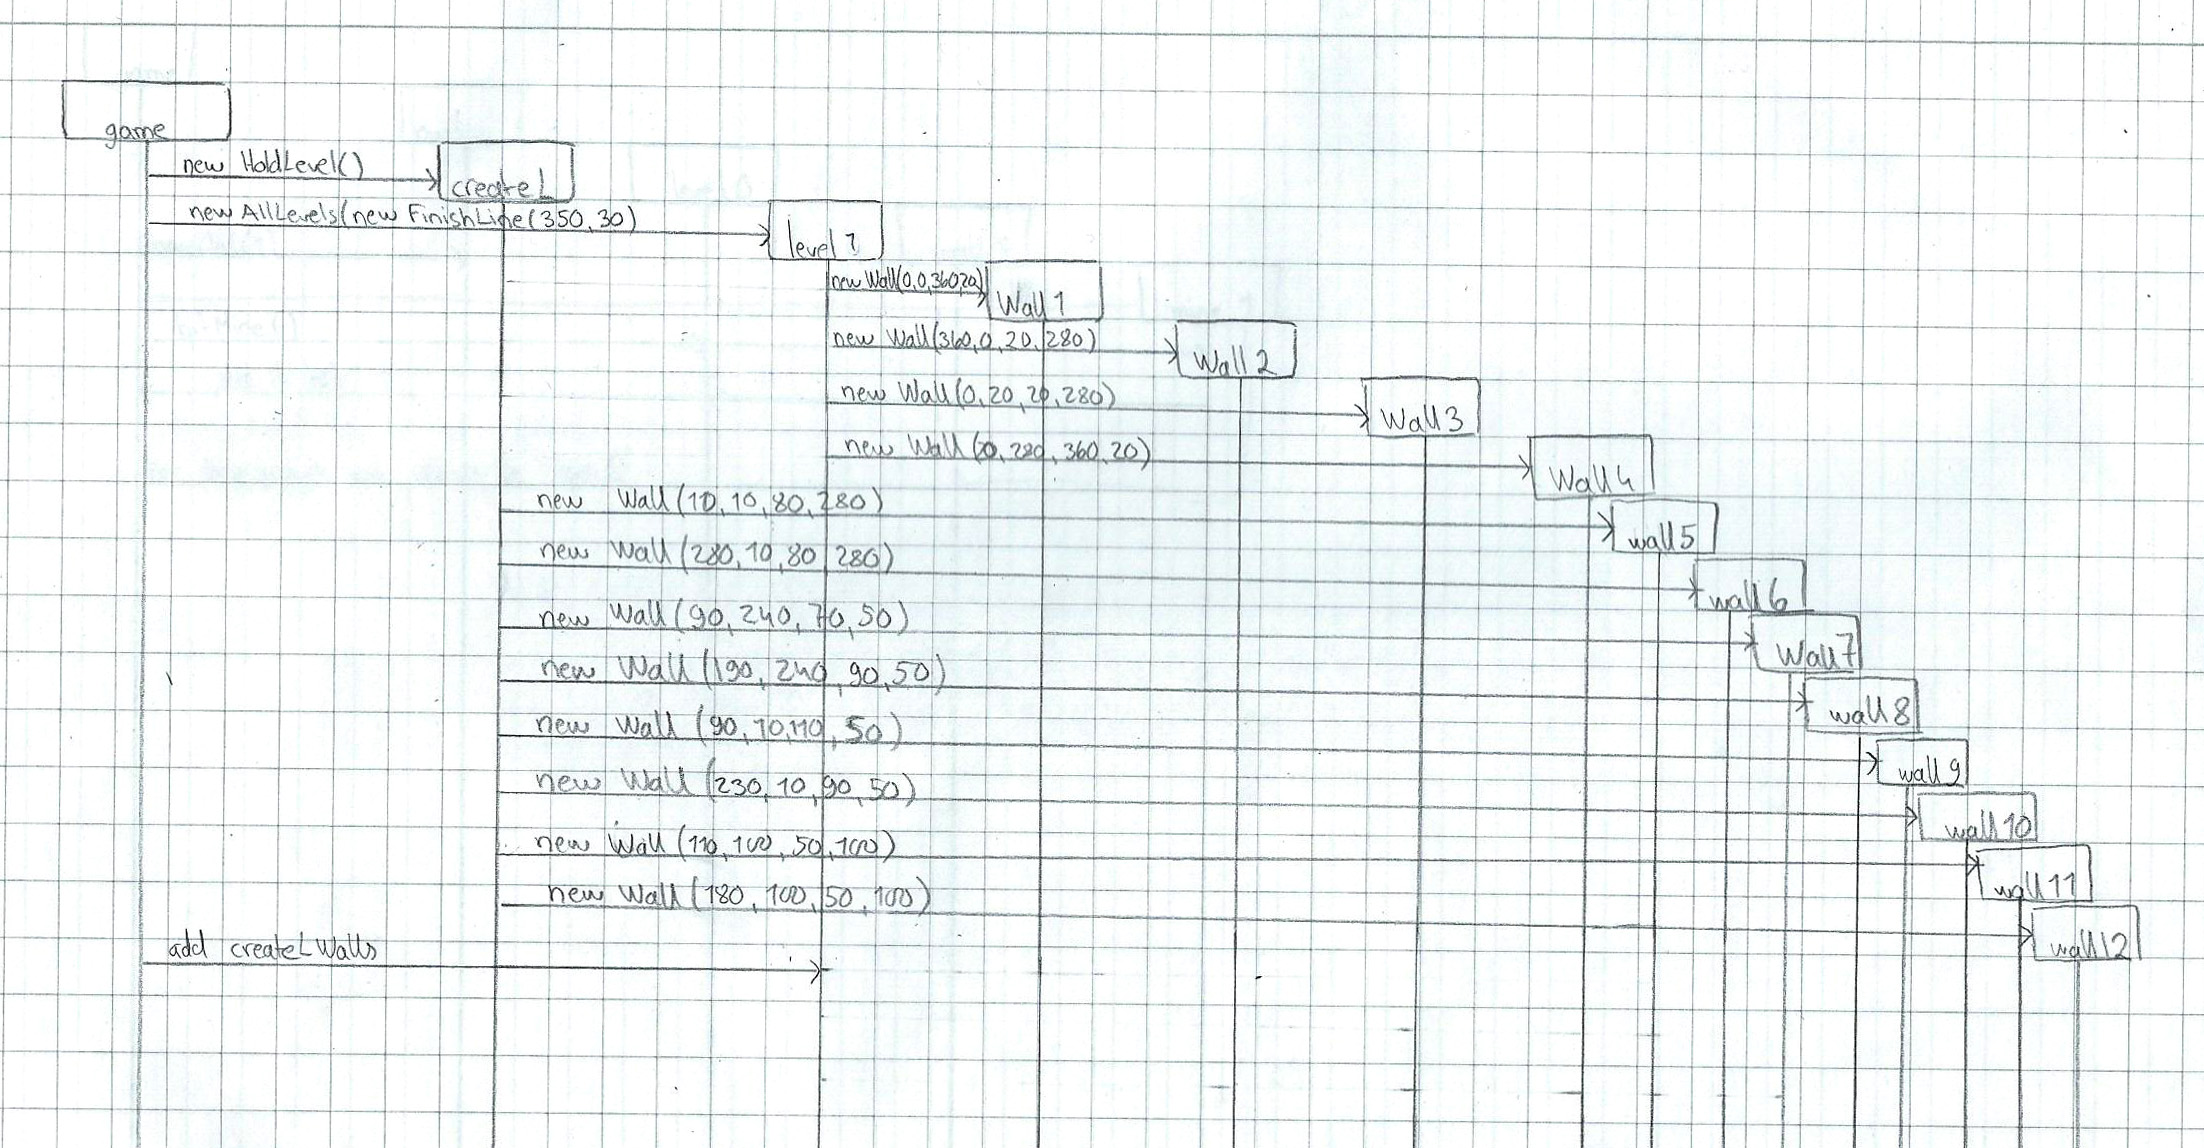 game
new HoldLevel()
createL
new AllLevels(new FinishLine(350,30)
level 1
new Wall(0,0,360,20)
Wall 1
new Wall(360,0,20,280)
Wall 2
new Wall(0,20,20,280)
Wall 3
new Wall(20,280,360,20)
Wall 4
new Wall(10,10,80,280)
wall 5
new Wall(280,10,80,280)
wall 6
new Wall(90,240,70,50)
Wall 7
new Wall(190,240,90,50)
wall 8
new Wall (90,10,110,50)
wall 9
new Wall (230,10,90,50)
wall 10
new Wall (110,100,50,100)
wall 11
new Wall (180,100,50,100)
wall 12
add createL Walls